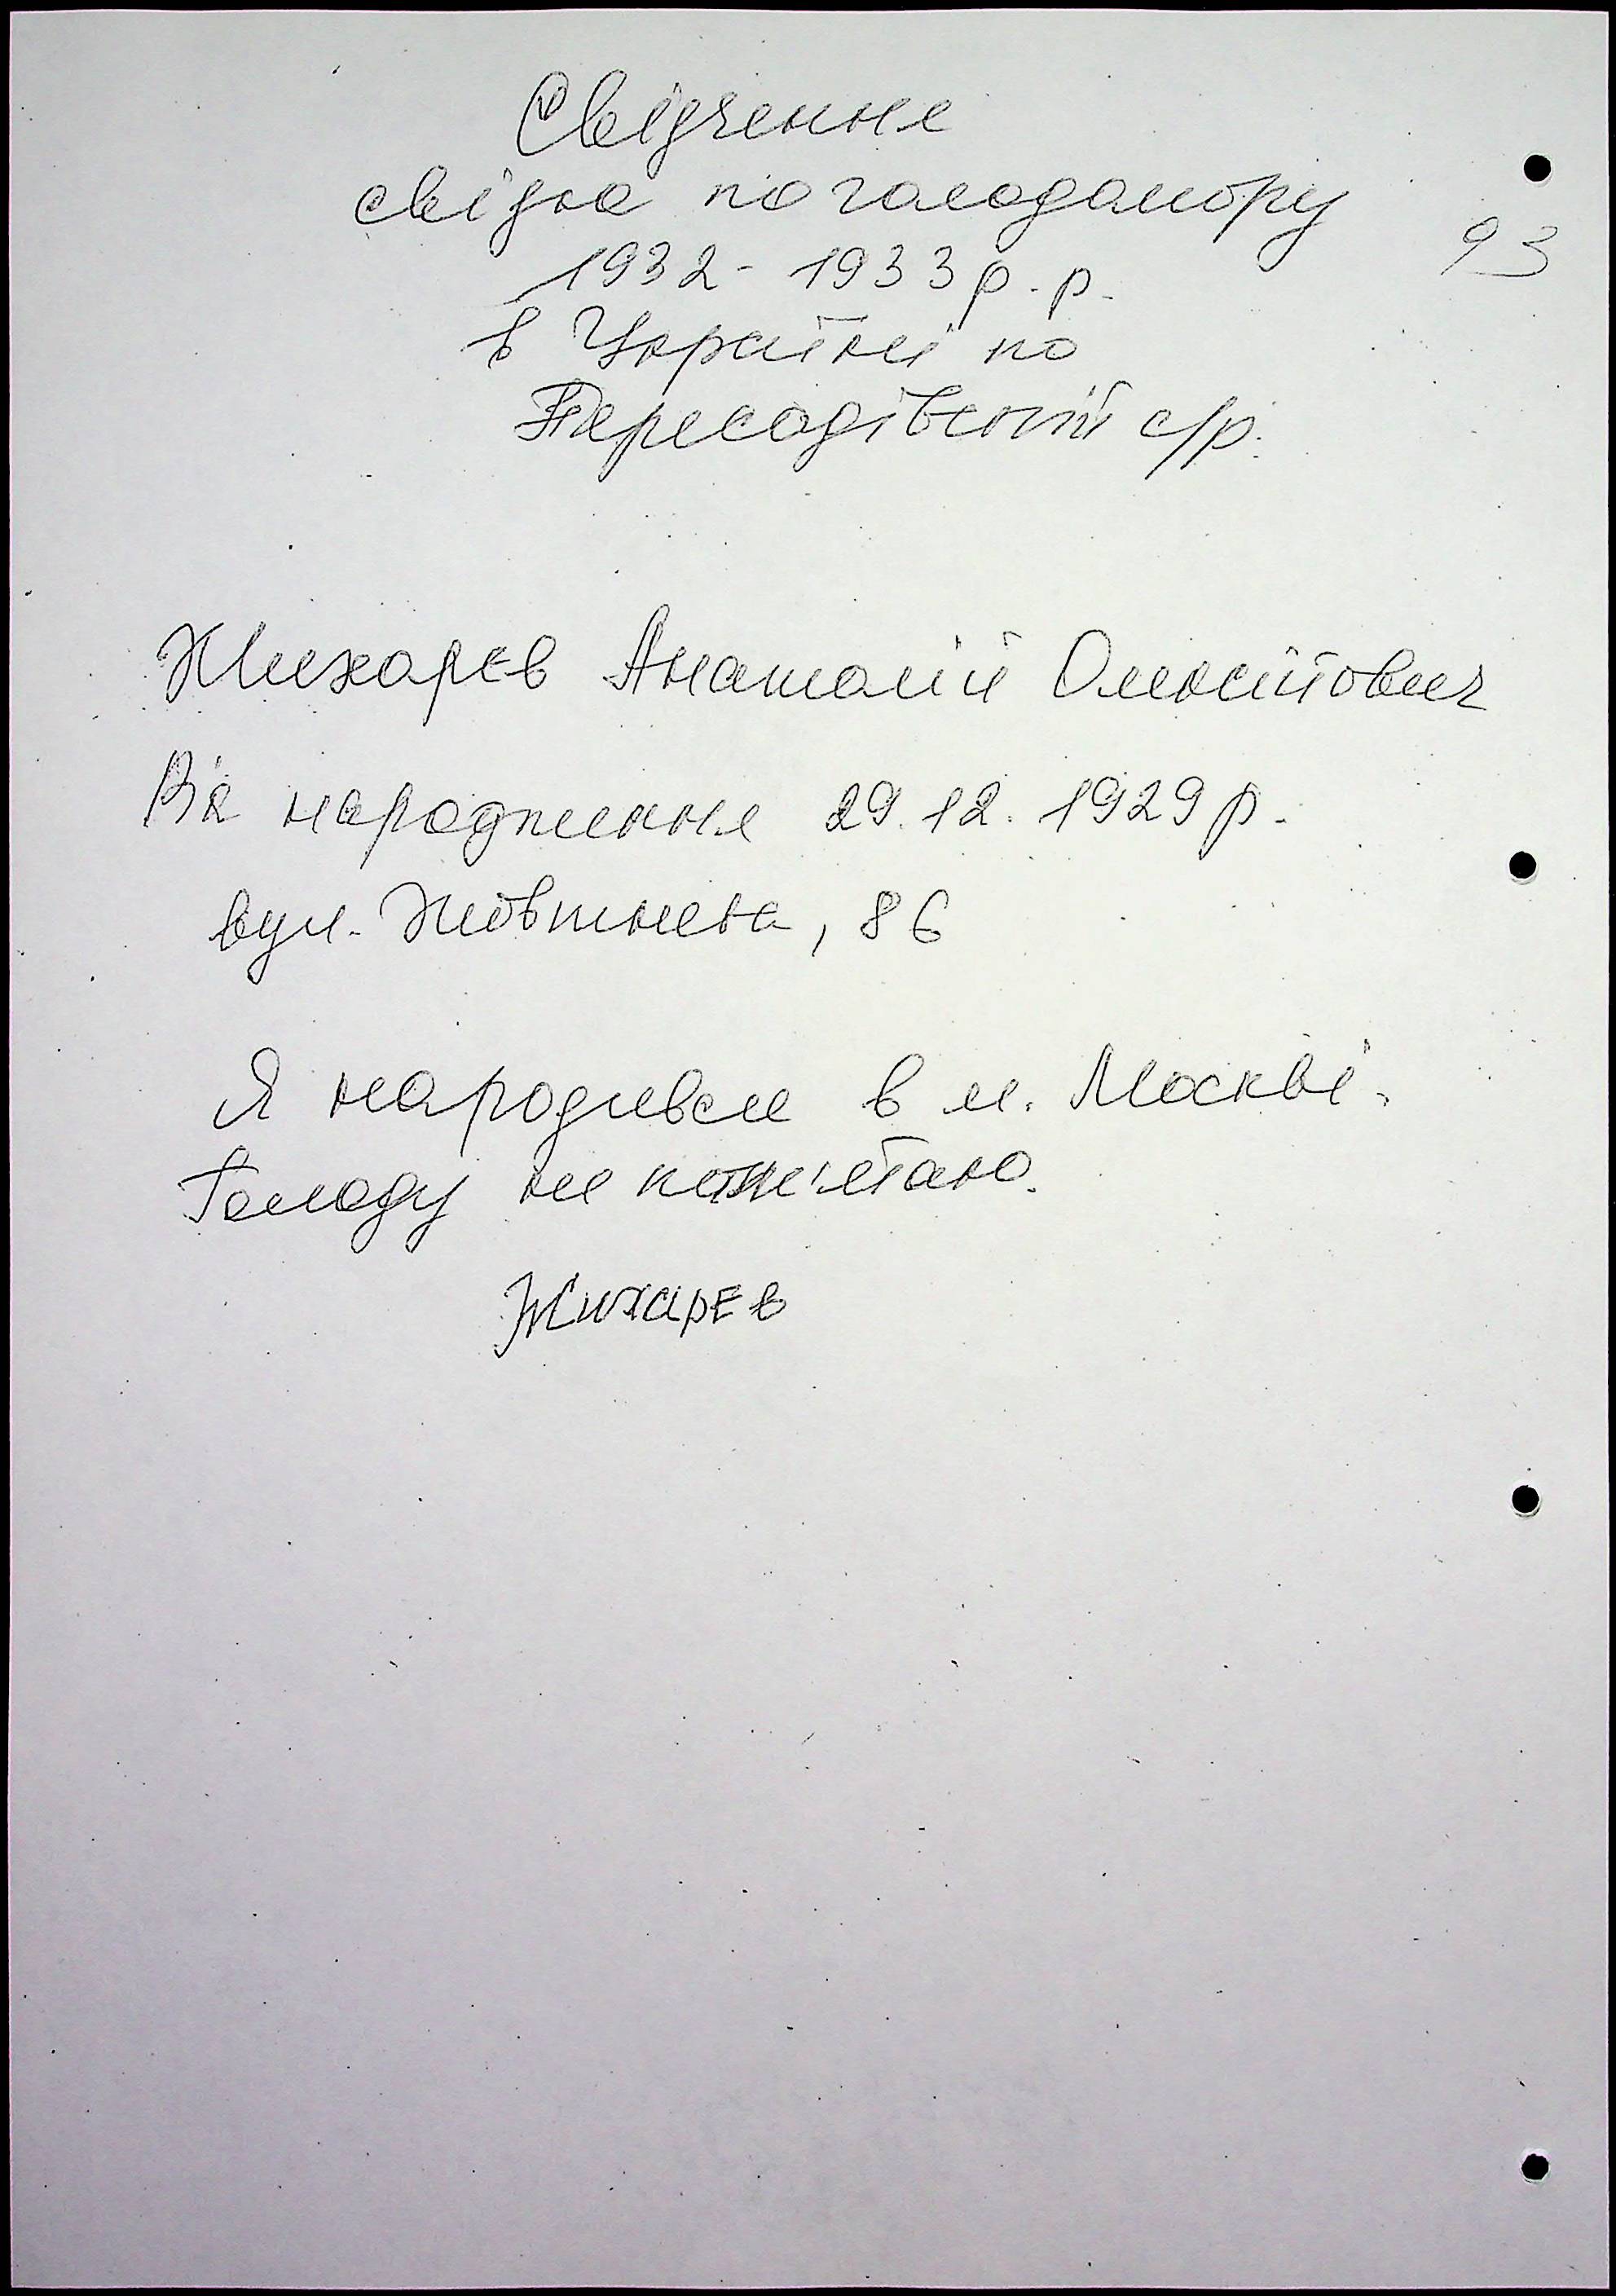 Свідчення
свідка по голодомору
93
1932-1933 р.р.
в Україні по
Пересадівській с/р.
Жихарев Анатолій Олексійович
Вік народження 29.12.1929 р.
вул. Жовтнева, 86
Я народився в м. Москві.
Голоду не пам'ятаю.
Жихарев